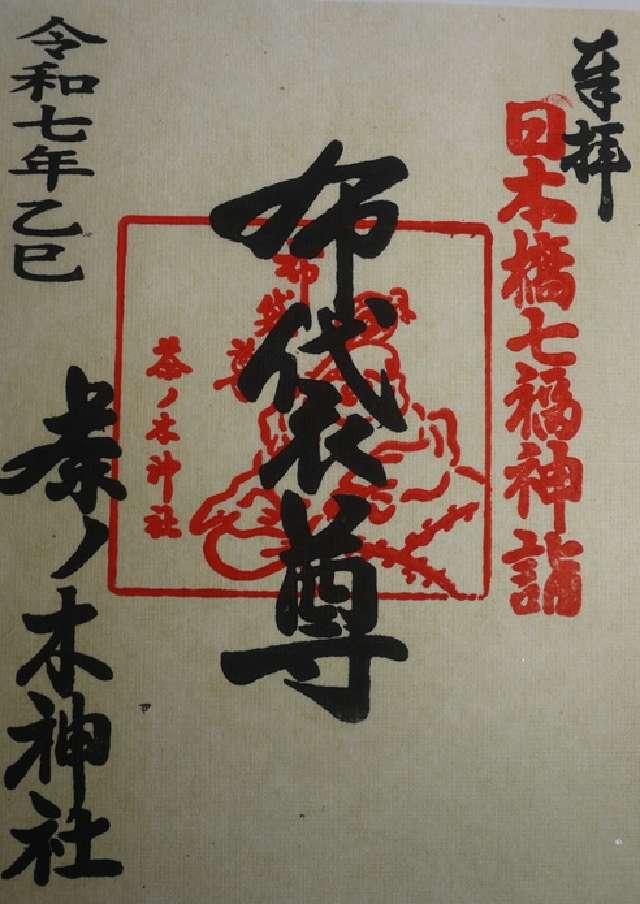 奉拝
日本橋七福神詣
布袋尊
布袋尊
茶ノ木神社
令和七年乙巳
茶ノ木神社